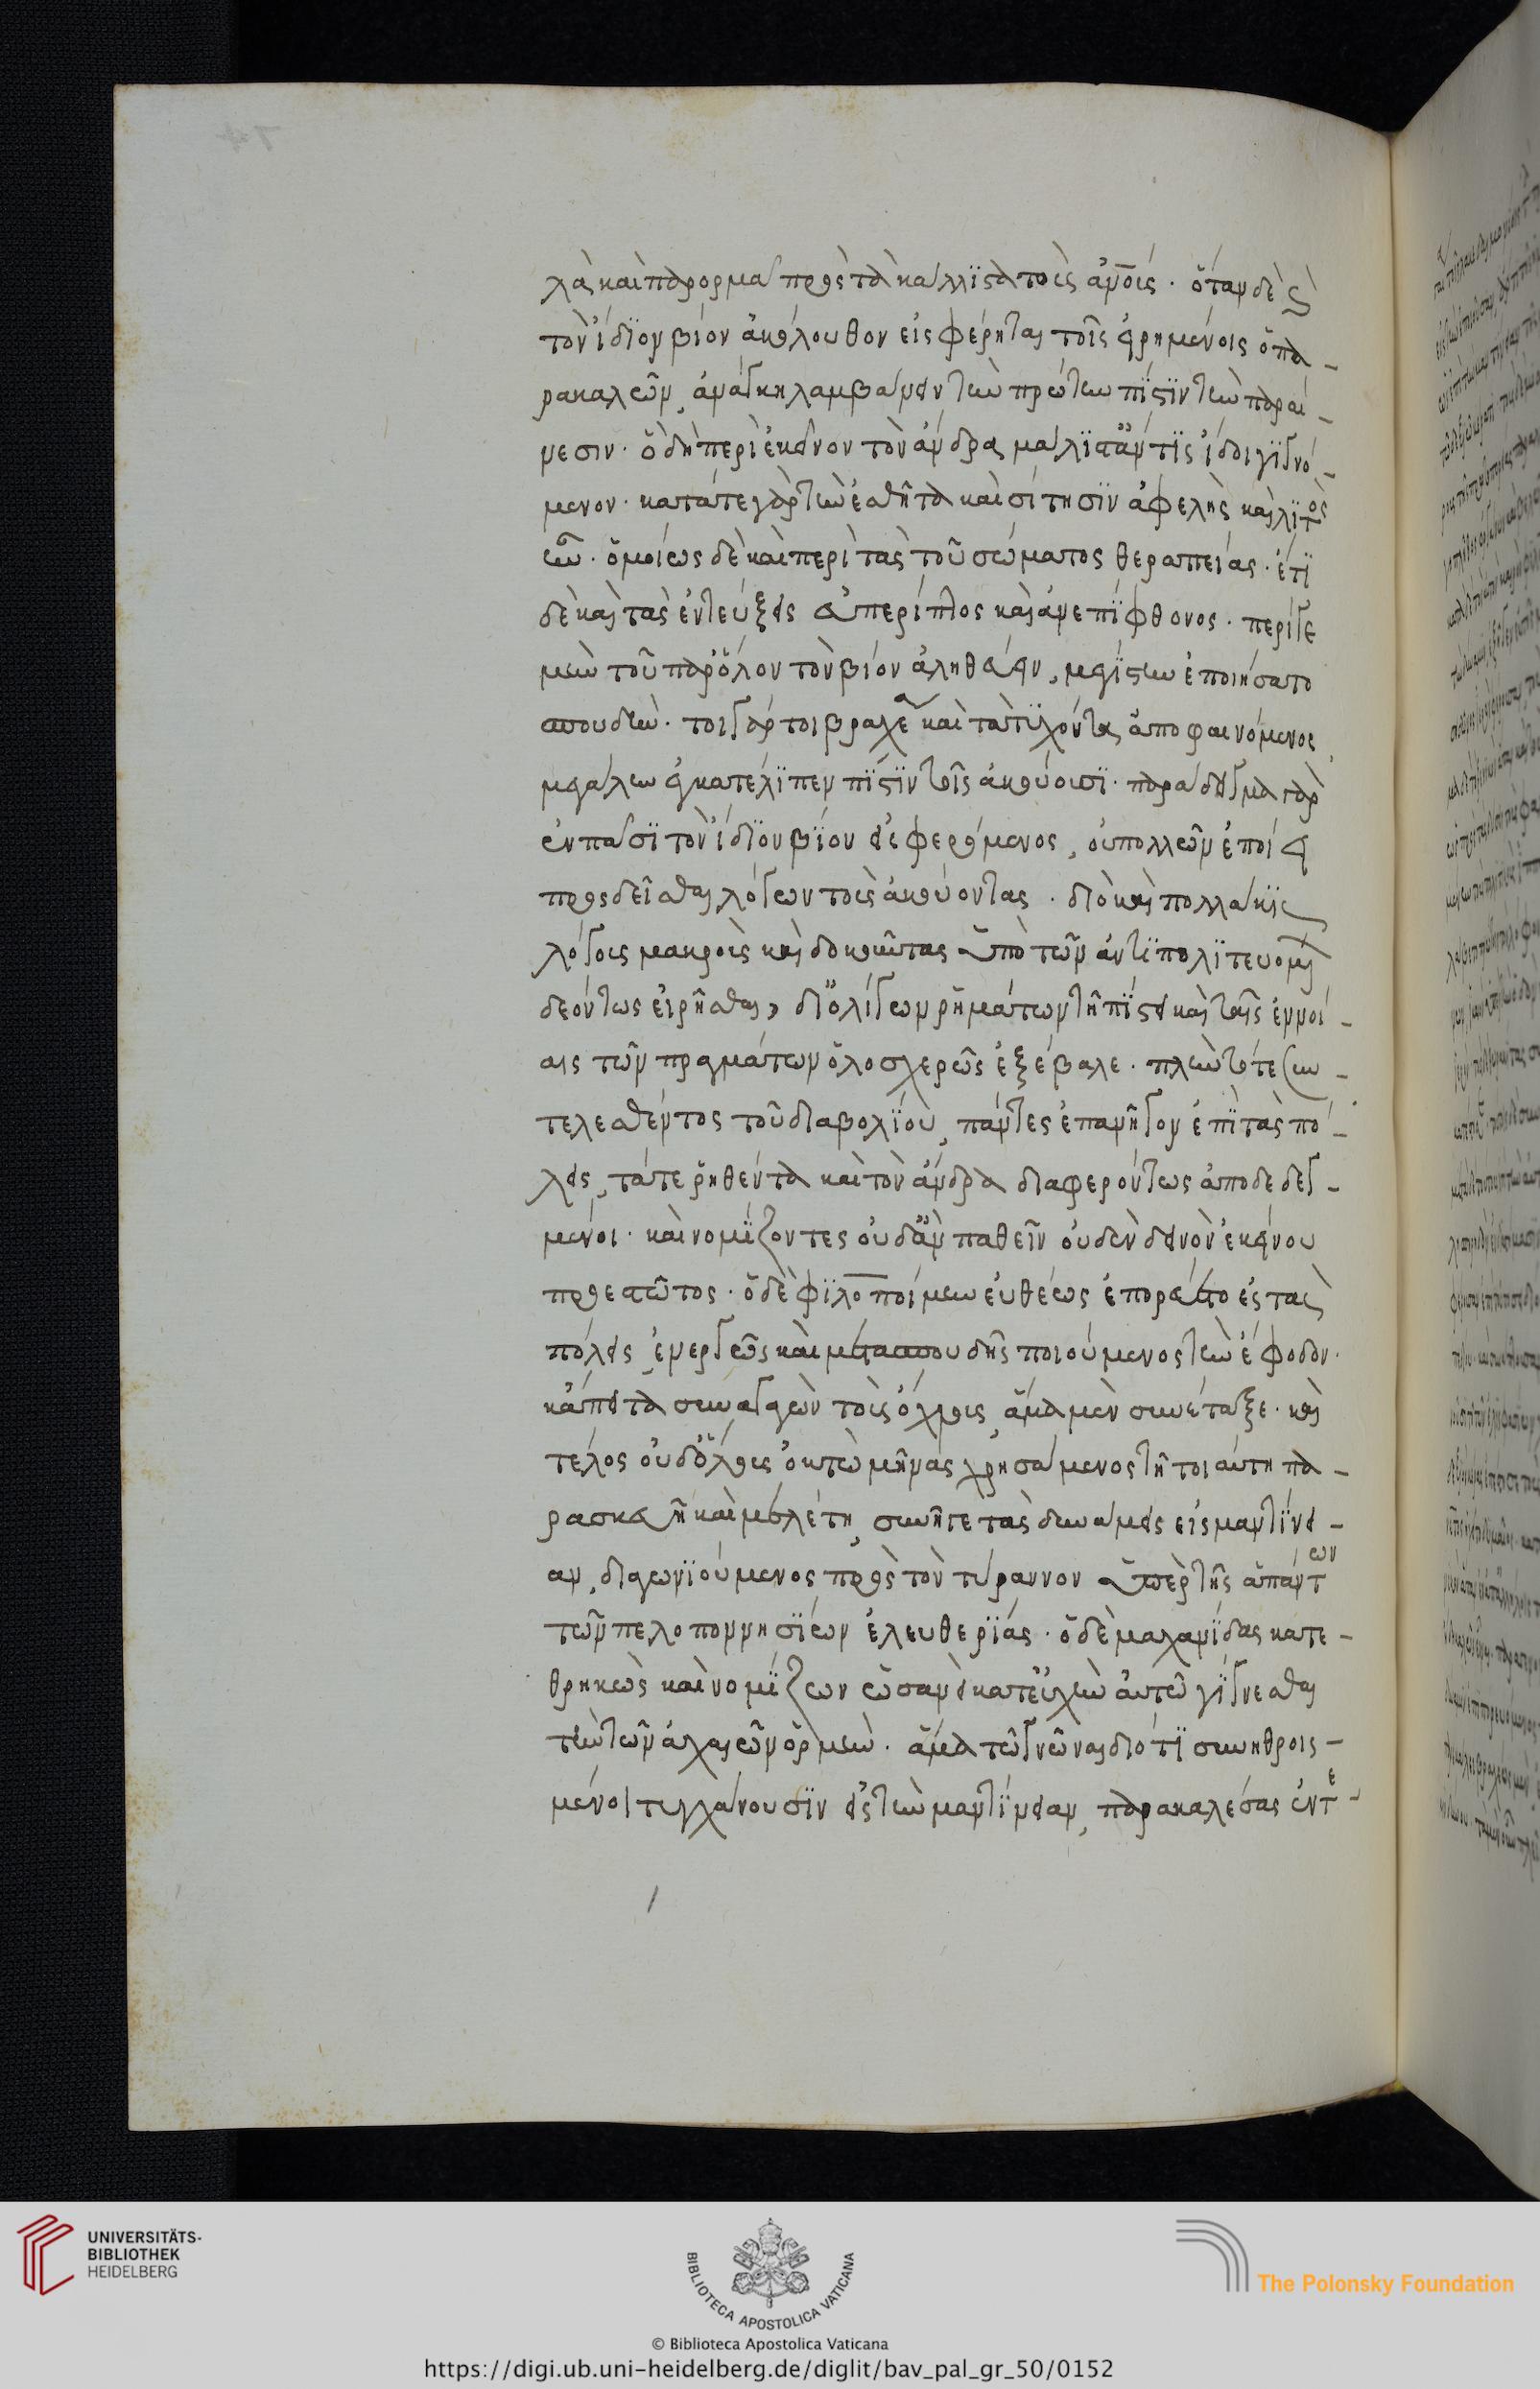 λὰ καὶ παρορμᾷ πρὸς τὰ κάλλιστα τοὺς ἀνοὺς. ὅταν δὲ καὶ
τὸν ἴδιον βίον ἀκόλουθον εἰσφέρηται τοῖς εἰρημένοις ὁ πα-
ρακαλῶν, ἀνάγκη λαμβάνειν τὴν πρώτην πίστιν τὴν παραί-
νεσιν. ὃ δὴ περὶ ἐκεῖνον τὸν ἄνδρα μάλιστ' ἄν τις ἴδοι γιγνό-
μενον. κατά τε γὰρ τὴν ἐσθῆτα καὶ σίτησιν ἀφελὴς καὶ λιτὸς
ἦν. ὁμοίως δὲ καὶ περὶ τὰς τοῦ σώματος θεραπείας. ἔτι
δὲ καὶ τὰς ἐντεύξεις εὐπερίκοπτος καὶ ἀνεπίφθονος. περί γε
μὴν τοῦ παρ' ὅλον τὸν βίον ἀληθεύειν, μεγίστην ἐποιήσατο
σπουδὴν. τοιγάρτοι βραχέα καὶ τὰ τυχόντα ἀποφαινόμενος
μεγάλην ἐγκατέλιπεν πίστιν τοῖς ἀκούουσι. παράδειγμα γὰρ
ἐν πᾶσι τὸν ἴδιον βίον εἰσφερόμενος, οὐ πολλῶν ἐποίει
προσδεῖσθαι λόγων τοὺς ἀκούοντας. διὸ καὶ πολλάκις
λόγους μακροὺς καὶ δοκοῦντας ὑπὸ τῶν ἀντιπολιτευομένων
δεόντως εἰρῆσθαι, δι' ὀλίγων ῥημάτων τῇ πίστει καὶ ταῖς ἐννοί-
αις τῶν πραγμάτων ὁλοσχερῶς ἐξέβαλε. πλὴν τότε συν-
τελεσθέντος τοῦ διαβουλίου, πάντες ἐπανῆγον ἐπὶ τὰς πό-
λεις, τά τε ῥηθέντα καὶ τὸν ἄνδρα διαφερόντως ἀποδεδεγ-
μένοι. καὶ νομίζοντες οὐδ' ἂν παθεῖν οὐδὲν δεινὸν ἐκείνου
προεστῶτος. ὁ δὲ φιλοποίμην εὐθέως ἐπορεύετο εἰς τὰς
πόλεις, ἐνεργῶς καὶ μετὰ σπουδῆς ποιούμενος τὴν ἔφοδον.
κἄπειτα συναγαγὼν τοὺς ὄχλους, ἅμα μὲν συνέταξε. καὶ
τέλος οὐδ' ὅλους ὀκτὼ μῆνας χρησάμενος τῇ τοιαύτῃ πα-
ρασκευῇ καὶ μελέτῃ, συνῆγε τὰς δυνάμεις εἰς μαντίνει-
αν, διαγωνιούμενος πρὸς τὸν τύραννον ὑπὲρ τῆς ἁπάντων
τῶν πελοποννησίων ἐλευθερίας. ὁ δὲ μαχανίδας κατε-
θρηκὼς καὶ νομίζων ὡσανεὶ κατ' εὐχὴν αὐτῷ γίγνεσθαι
τὴν τῶν ἀχαιῶν ὁρμὴν. ἅμα τῷ γνῶναι διότι συνηθροισ-
μένοι τυγχάνουσιν εἰς τὴν μαντίνειαν, παρακαλέσας ἐν τε-
UNIVERSITÄTS-
BIBLIOTHEK
HEIDELBERG
BIBLIOTECA APOSTOLICA VATICANA
The Polonsky Foundation
© Biblioteca Apostolica Vaticana
https://digi.ub.uni-heidelberg.de/diglit/bav_pal_gr_50/0152